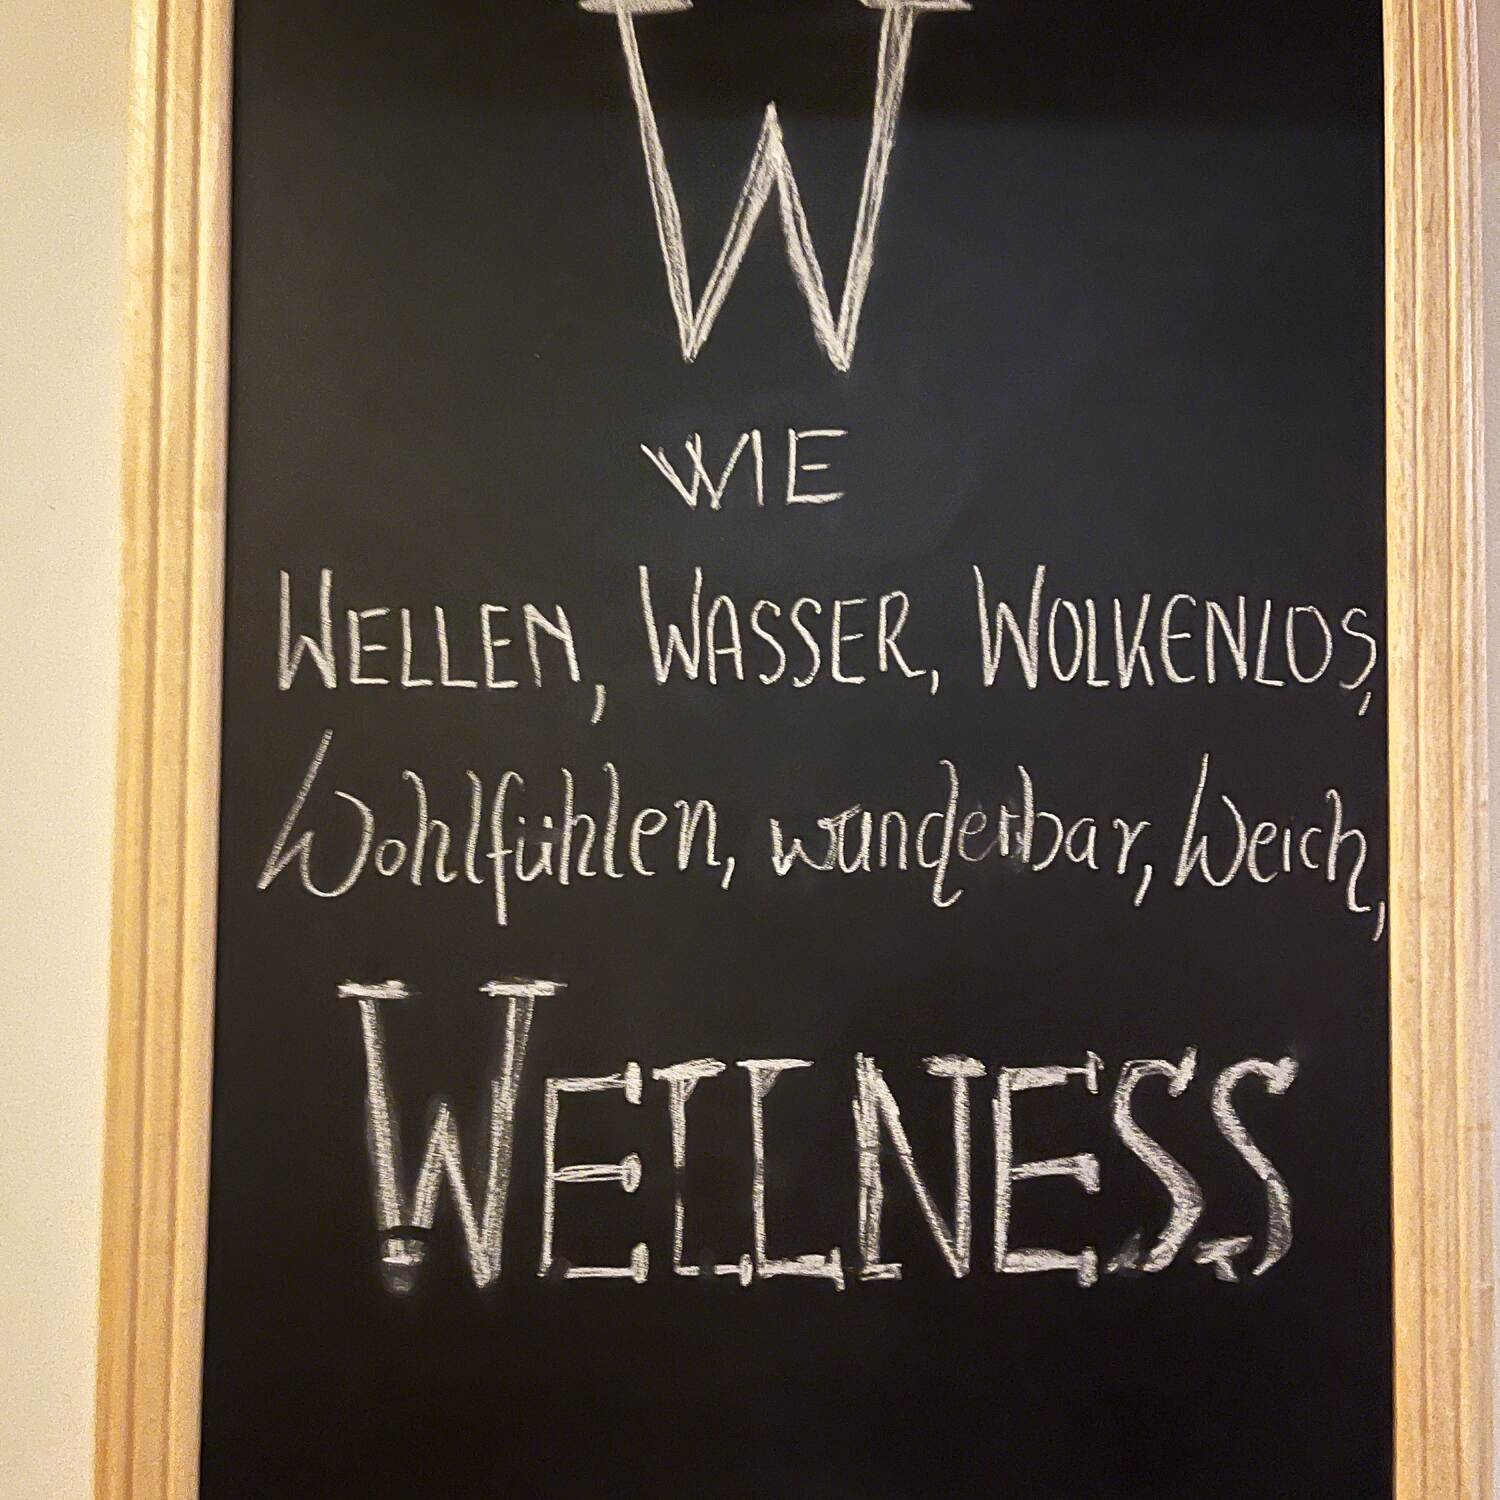 W
WIE
WELLEN, WASSER, WOLKENLOS,
Wohlfühlen, wunderbar, Weich,
WELLNESS